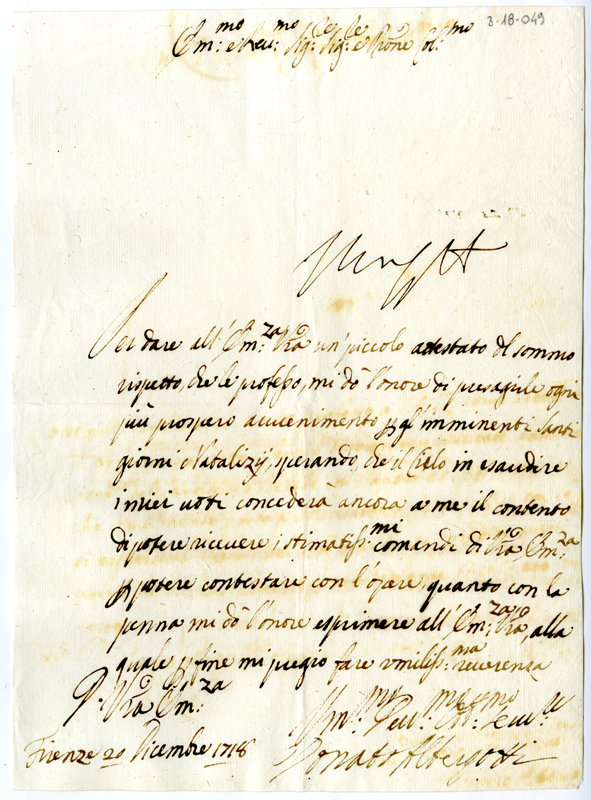 3-18-049
Em:mo e Reu:mo Sig:re Sig:re e Prone Col:mo
Per dare all'Em:za Vra un piccolo attestato del sommo
rispetto, che le professo, mi dò l'onore di presagirle ogni
più prospero avvenimento p gl'imminenti Santi
giorni Natalizij, sperando, che il Cielo in esaudire
i miei uoti concederà ancora a me il contento
di potere riceuere i stimatiss:mi comandi di Vra Em:za
p potere contestare con l'opere quanto con la
penna mi dò l'onore esprimere all'Em:za Vra, alla
quale p fine mi pregio fare umiliss:ma reuerenza
D. Vra Em:za
Firenze 20 Dicembre 1718
Donato Albergotti